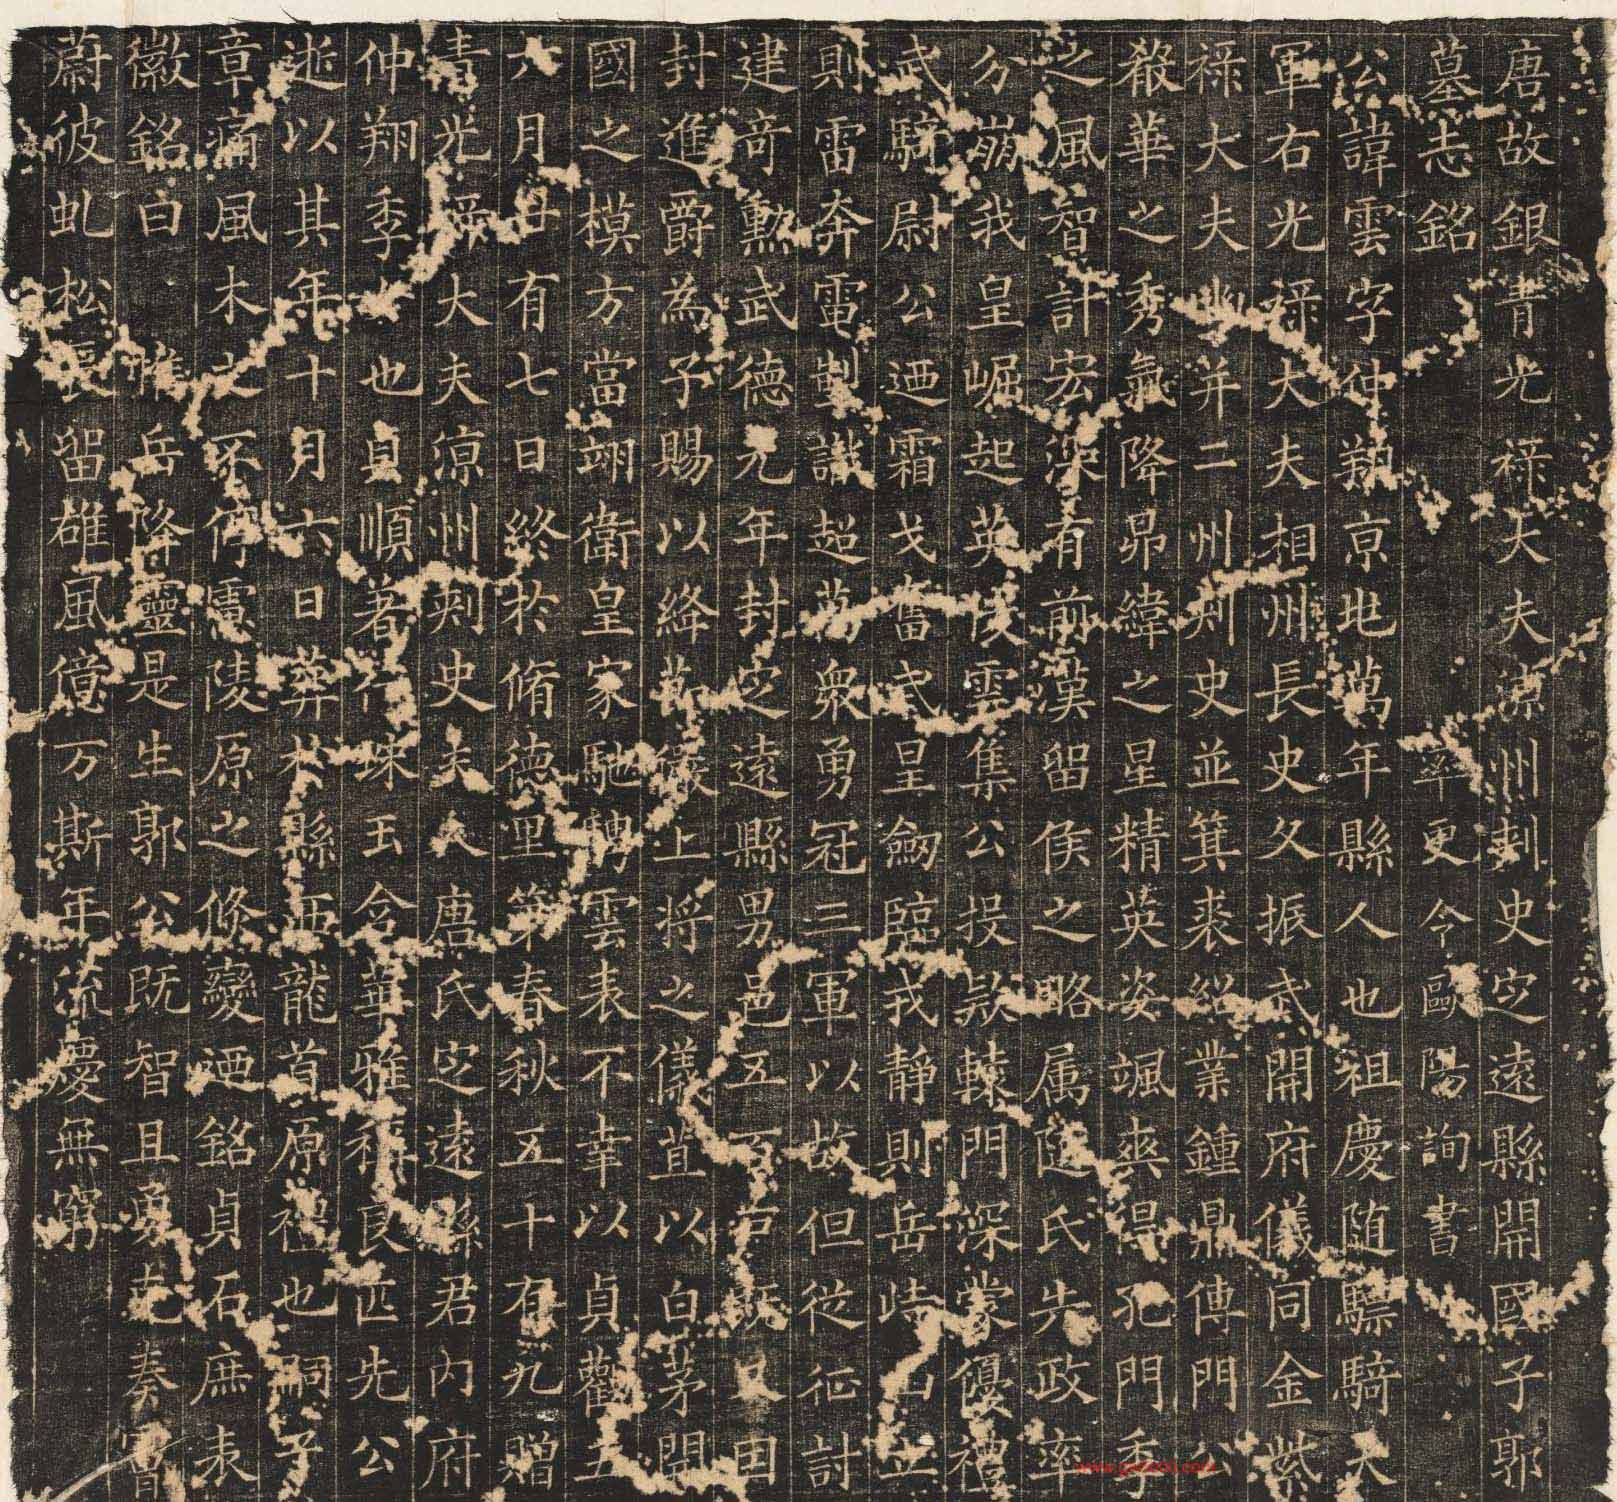 唐故銀青光祿大夫涼州刺史定遠縣開國子郭
墓志銘 率更令歐陽詢書
公諱雲字仲翔京兆萬年縣人也祖慶随驃騎大
軍右光祿大夫相州長史父振武開府儀同金紫
祿大夫幽并二州刾史並箕裘紹業鍾鼎傳門公
殺華之秀氣降昴緯之星精英姿颯爽得孔門季
之風智計宏深有前漢留侯之略属随氏失政率
分崩我皇崛起英俊雲集公投款轅門深蒙優禮
武騎尉公迺霜戈奮武皇劒臨我静則岳峙山立
則雷奔電掣謀超萬衆勇冠三軍以故但從征討
建奇勲武德元年封定遠縣男邑五百户賜良田
封進爵為子賜以絳節緩上将之儀苴以白茅開
國之模方當翊衛皇家馳騁雲表不幸以貞觀五
六月廿有七日終於脩德里第春秋五十有九贈
青光祿大夫涼州刾史夫人唐氏定遠縣君内府
仲翔季也貞順著行珠玉含華雅稱良匹先公
逝以其年十月六日葬於縣西龍首原禮也嗣子
章痛風木之不停慮陵原之倏變迺銘貞石庶表
徽銘曰 惟岳降靈是生郭公既智且勇克奏
蔚彼虬松長留雄風億万斯年流慶無窮
www.